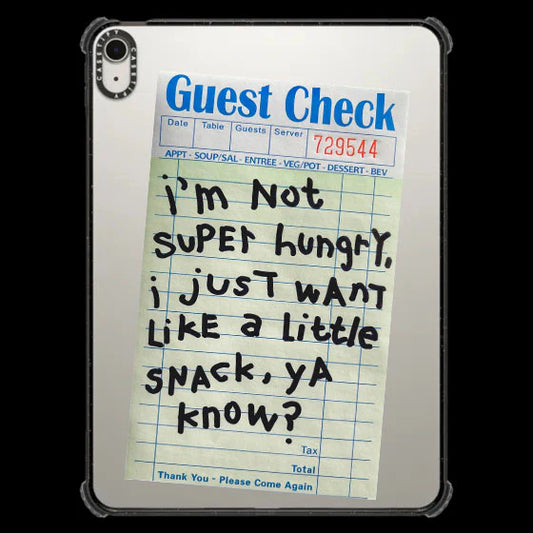 CASETIFY CASETIFY
Guest Check
Date Table Guests Server
729544
APPT - SOUP/SAL - ENTREE - VEG/POT - DESSERT - BEV
i'm Not
SUPEr hungrY.
i jUST WANT
LiKE a Little
SNACK, YA
KnOW?
Tax
Total
Thank You - Please Come Again